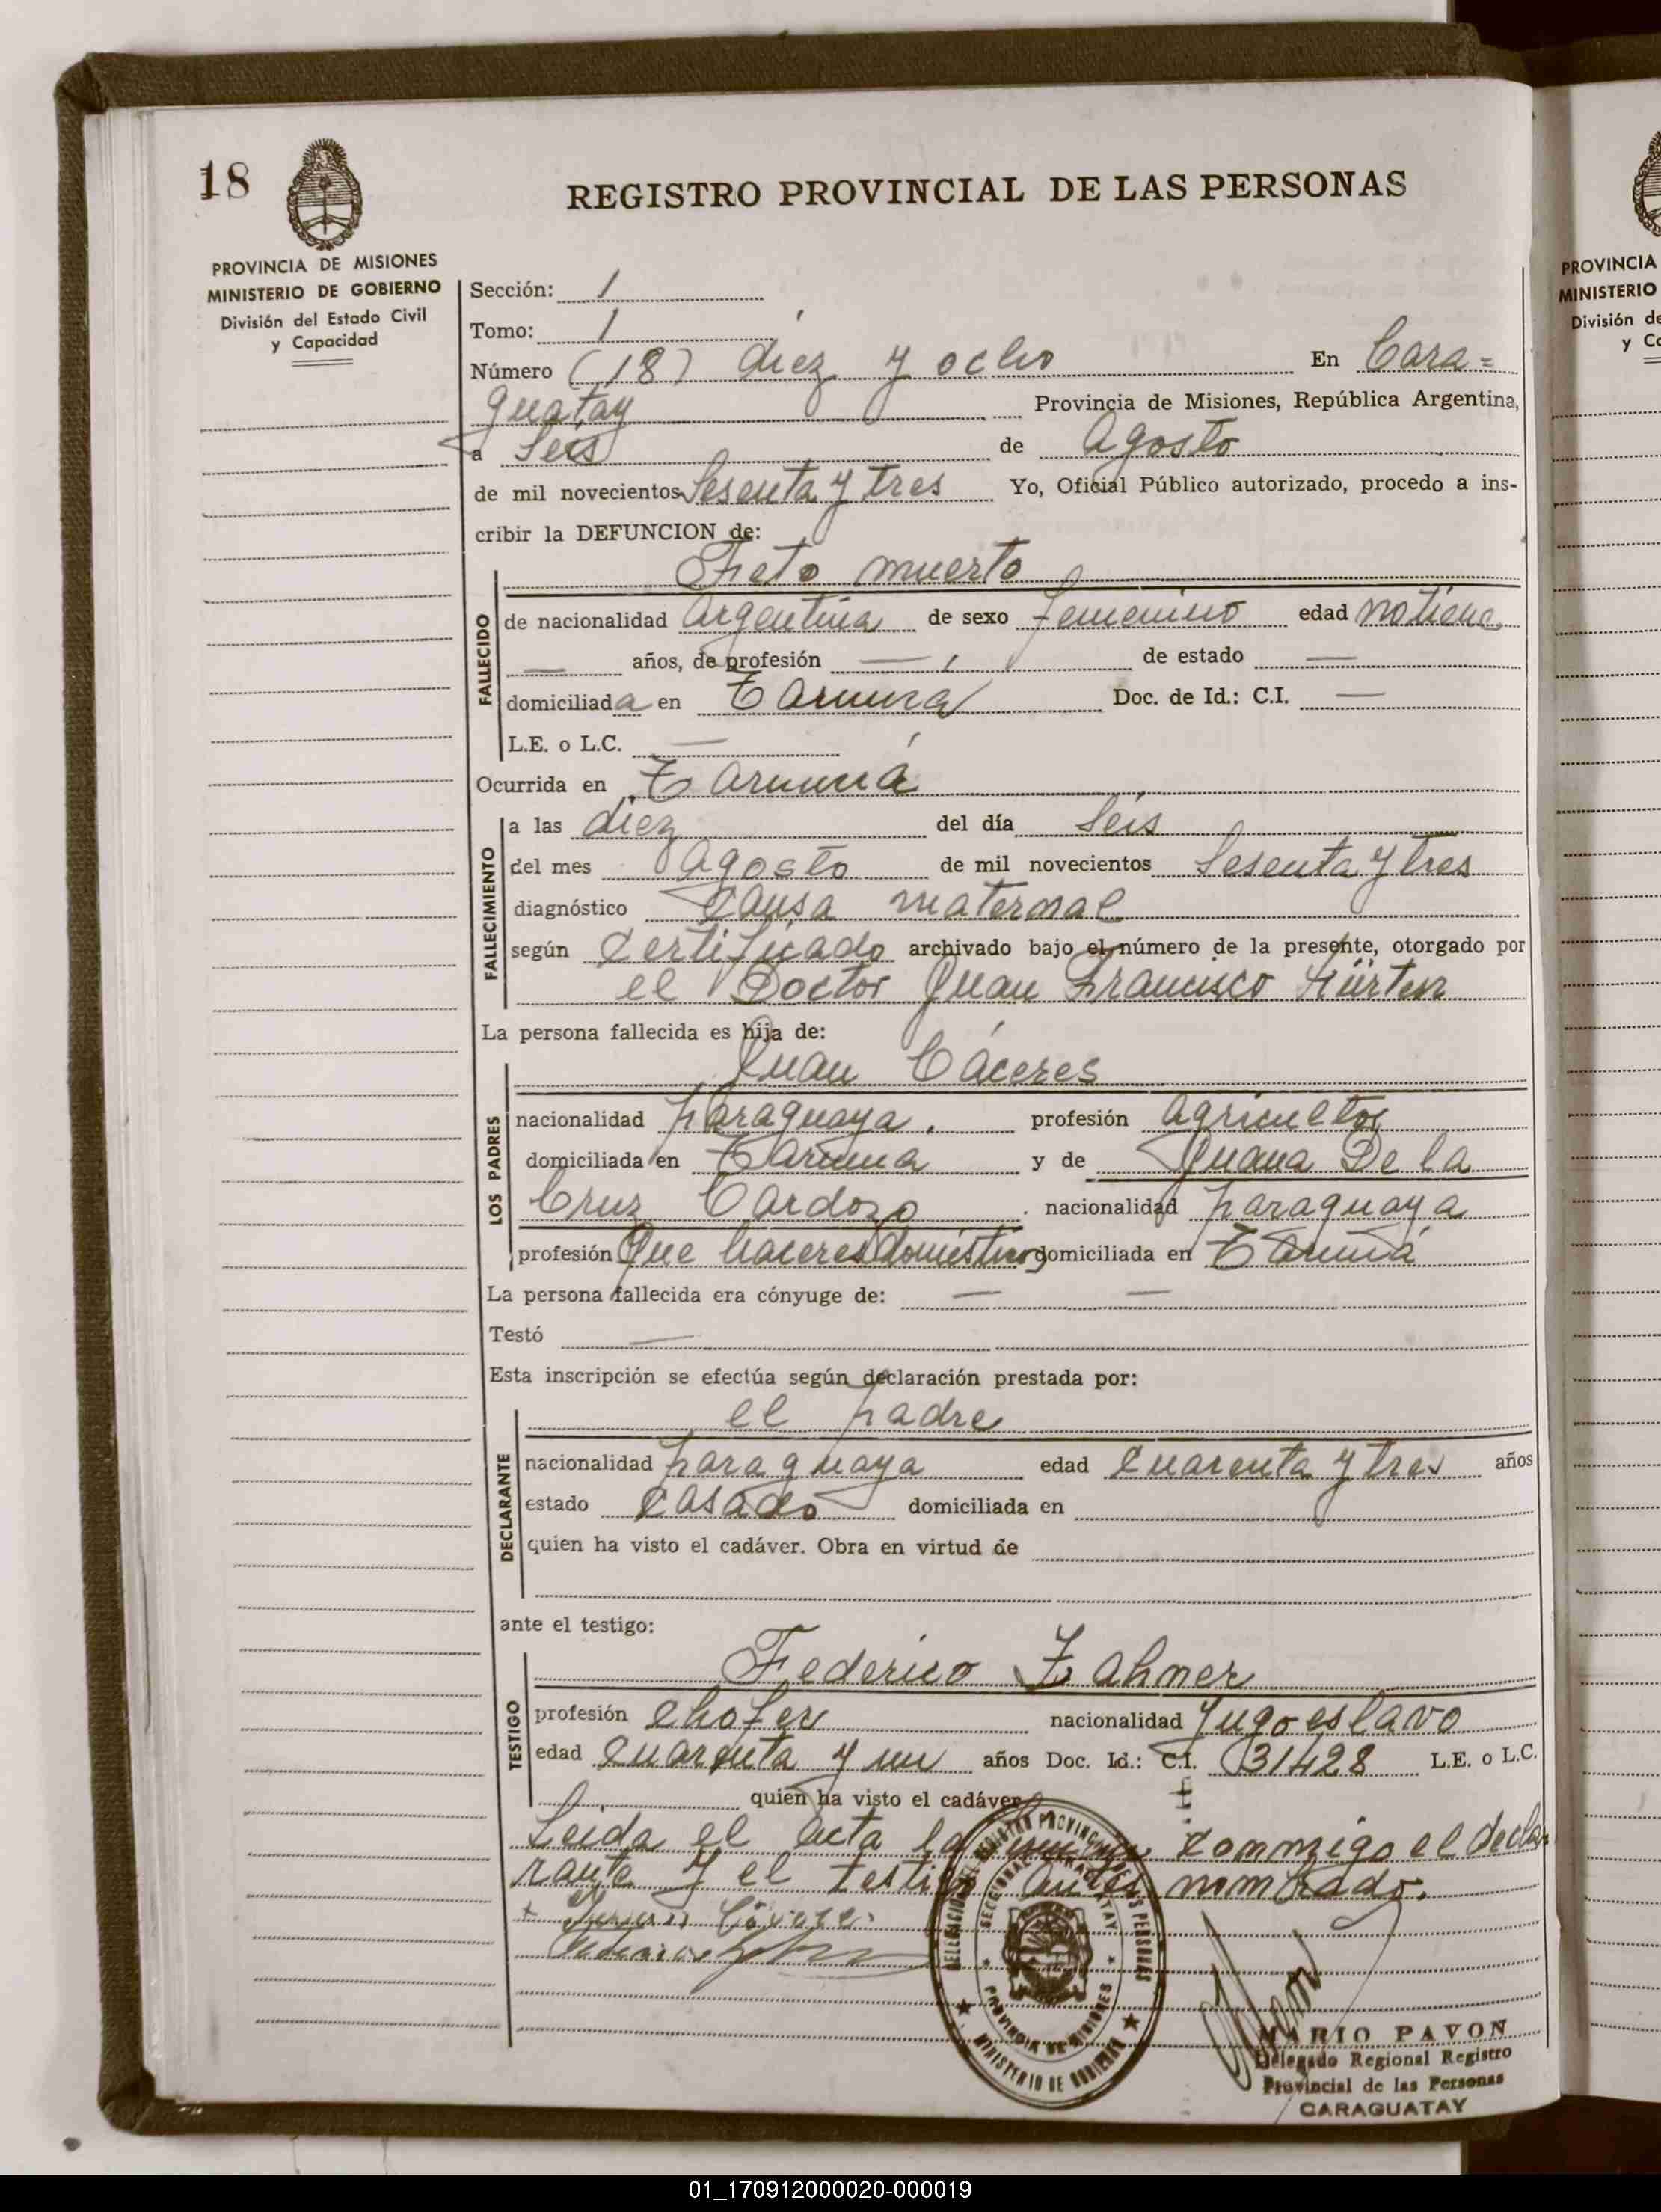 18
REGISTRO PROVINCIAL DE LAS PERSONAS
PROVINCIA DE MISIONES
MINISTERIO DE GOBIERNO
División del Estado Civil
y Capacidad
Sección: 1
Tomo: 1
Número (18) diez y ocho En Cara=
guatay Provincia de Misiones, República Argentina,
a Seis de Agosto
de mil novecientos Sesenta y tres Yo, Oficial Público autorizado, procedo a ins-
cribir la DEFUNCION de:
Feto muerto
FALLECIDO
de nacionalidad Argentina de sexo femenino edad no tiene
— años, de profesión — de estado —
domiciliada en Tarumá Doc. de Id.: C.I. —
L.E. o L.C. —
Ocurrida en Tarumá
FALLECIMIENTO
a las diez del día Seis
del mes Agosto de mil novecientos Sesenta y tres
diagnóstico Causa maternal
según Certificado archivado bajo el número de la presente, otorgado por
el Doctor Juan Francisco Hürten
La persona fallecida es hija de:
Juan Cáceres
LOS PADRES
nacionalidad paraguaya. profesión Agricultor
domiciliada en Tarumá y de Juana De la
Cruz Cardozo. nacionalidad paraguaya
profesión Que haceres domésticos domiciliada en Tarumá
La persona fallecida era cónyuge de: — —
Testó —
Esta inscripción se efectúa según declaración prestada por:
el padre
DECLARANTE
nacionalidad paraguaya edad Cuarenta y tres años
estado Casado domiciliada en
quien ha visto el cadáver. Obra en virtud de
ante el testigo:
Federico Zahner
TESTIGO
profesión Chofer nacionalidad Jugoeslavo
edad Cuarenta y un años Doc. Id.: C.I. 31428 L.E. o L.C.
quien ha visto el cadáver
Leida el acta la conmigo el decla
rante y el testigo antes nombrado.
DELEGACION DEL REGISTRO PROVINCIAL DE LAS PERSONAS
SECCIONAL CARAGUATAY
PROVINCIA DE MISIONES
MINISTERIO DE GOBIERNO
MARIO PAVON
Delegado Regional Registro
Provincial de las Personas
CARAGUATAY
PROVINCIA
MINISTERIO
División de
y Ca
01_170912000020-000019